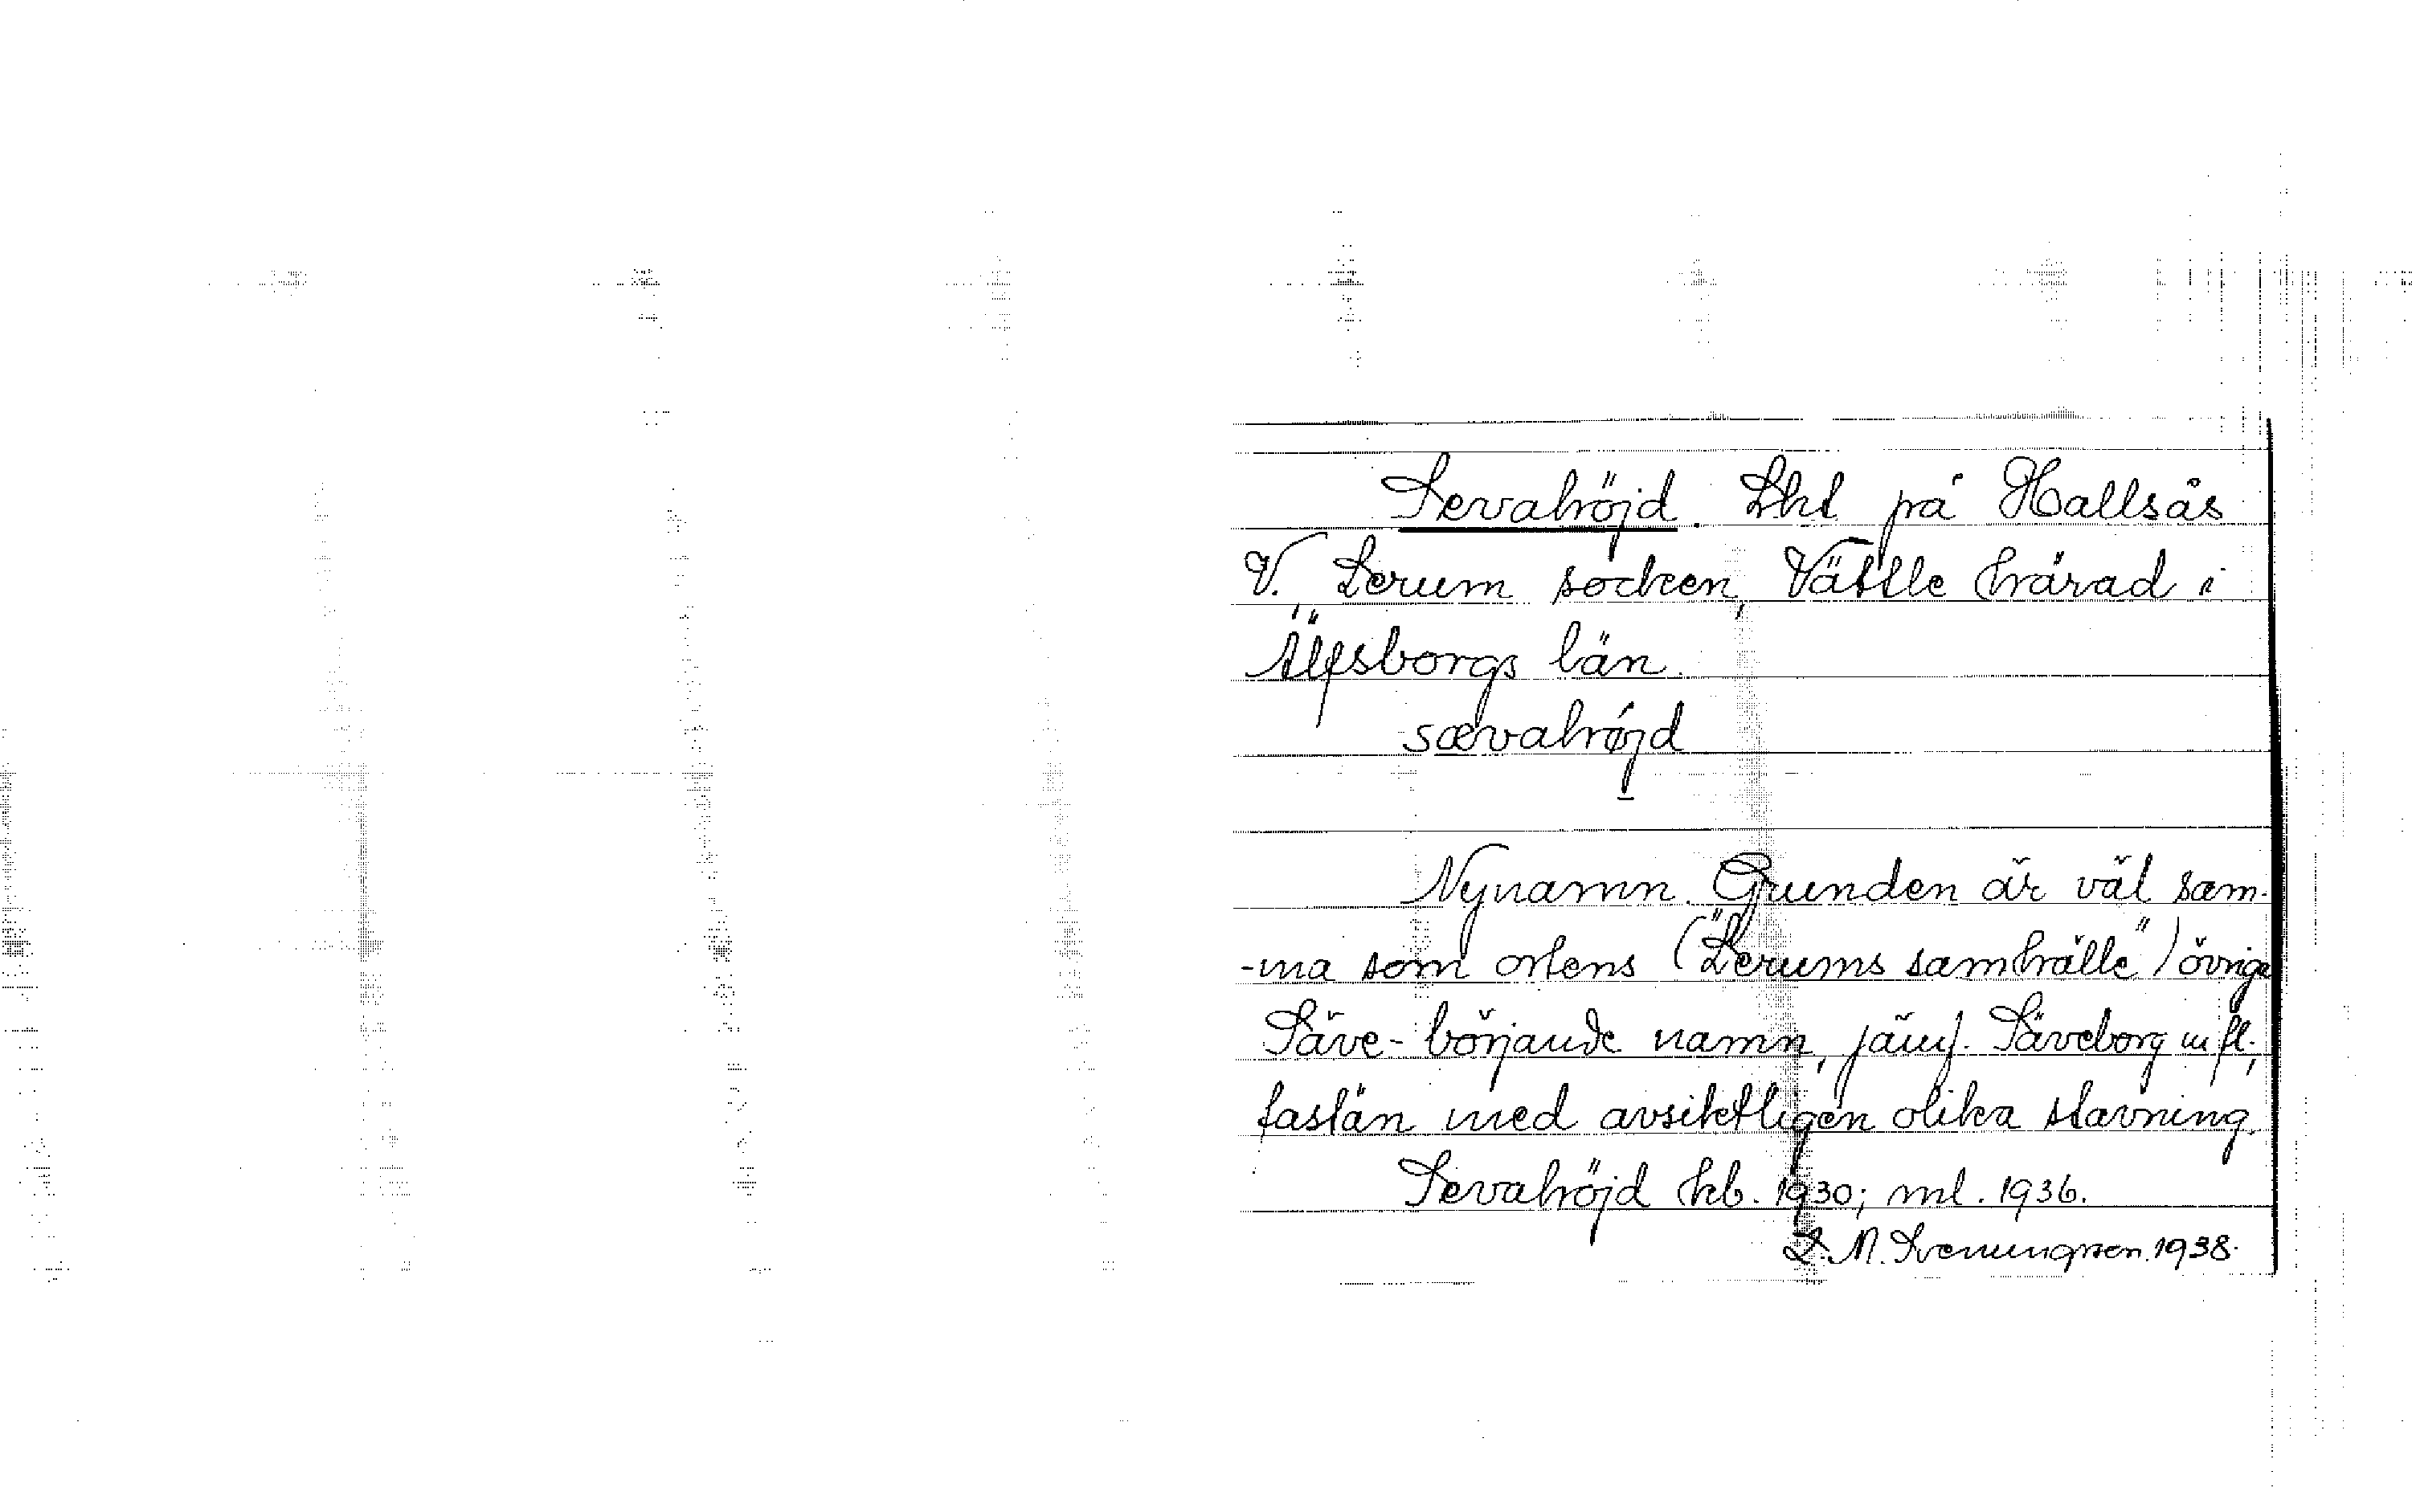 Sevahöjd. Lht på Hallsås
V., Lerum socken, Vättle härad i
Älfsborgs län.
sævahøjd
Nynamn. Grunden är väl sam-
-ma som ortens ("Lerums samhälle") övriga
Säve- började namn, jämf. Säveborg m fl.,
fastän med avsiktligen olika stavning.
Sevahöjd kb. 1930; ml. 1936.
L. M. Svenungsson. 1938.